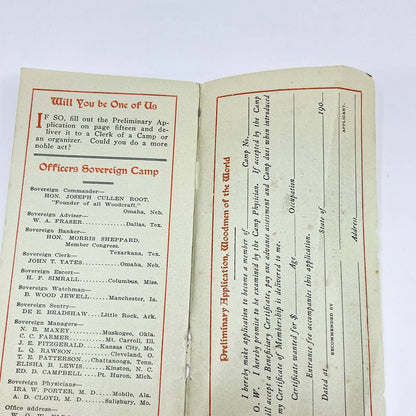 Will You be One of Us
IF SO, fill out the Preliminary Ap-
plication on page fifteen and de-
liver it to a Clerk of a Camp or
an organizer. Could you do a more
noble act?
Officers Sovereign Camp
Sovereign Commander—
HON. JOSEPH CULLEN ROOT,
"Founder of all Woodcraft." Omaha, Neb.
Sovereign Adviser—
W. A. FRASER Dallas, Tex.
Sovereign Banker—
HON. MORRIS SHEPPARD,
Member Congress. Texarkana, Tex.
Sovereign Clerk—
JOHN T. YATES Omaha, Neb.
Sovereign Escort—
H. F. SIMRALL Columbus, Miss.
Sovereign Watchman—
B. WOOD JEWELL Manchester, Ia.
Sovereign Sentry—
DE E. BRADSHAW Little Rock, Ark.
Sovereign Managers—
N. B. MAXEY Muskogee, Okla.
C. C. FARMER Mt. Carroll, Ill.
J. E. FITZGERALD Kansas City, Mo.
L. Q. RAWSON Cleveland, O.
T. E. PATTERSON Chattanooga, Tenn.
ELISHA B. LEWIS Kinston, N. C.
ED. D. CAMPBELL Pt. Huron, Mich.
Sovereign Physicians—
IRA W. PORTER, M. D. Mobile, Ala.
A. D. CLOYD, M. D. Salisbury, Mo.
Preliminary Application, Woodmen of the World
I hereby make application to become a member of Camp No.
O. W. I hereby promise to be examined by the Camp Physician. If accepted by the Camp
all accept a Beneficiary Certificate, pay one advance assessment and Camp dues when introduced
Certificate of Membership is delivered to me.
Certificate wanted for $ Age Occupation
Entrance fee accompanies this application.
Dated at State of 190
APPLICANT.
RECOMMENDED BY Address